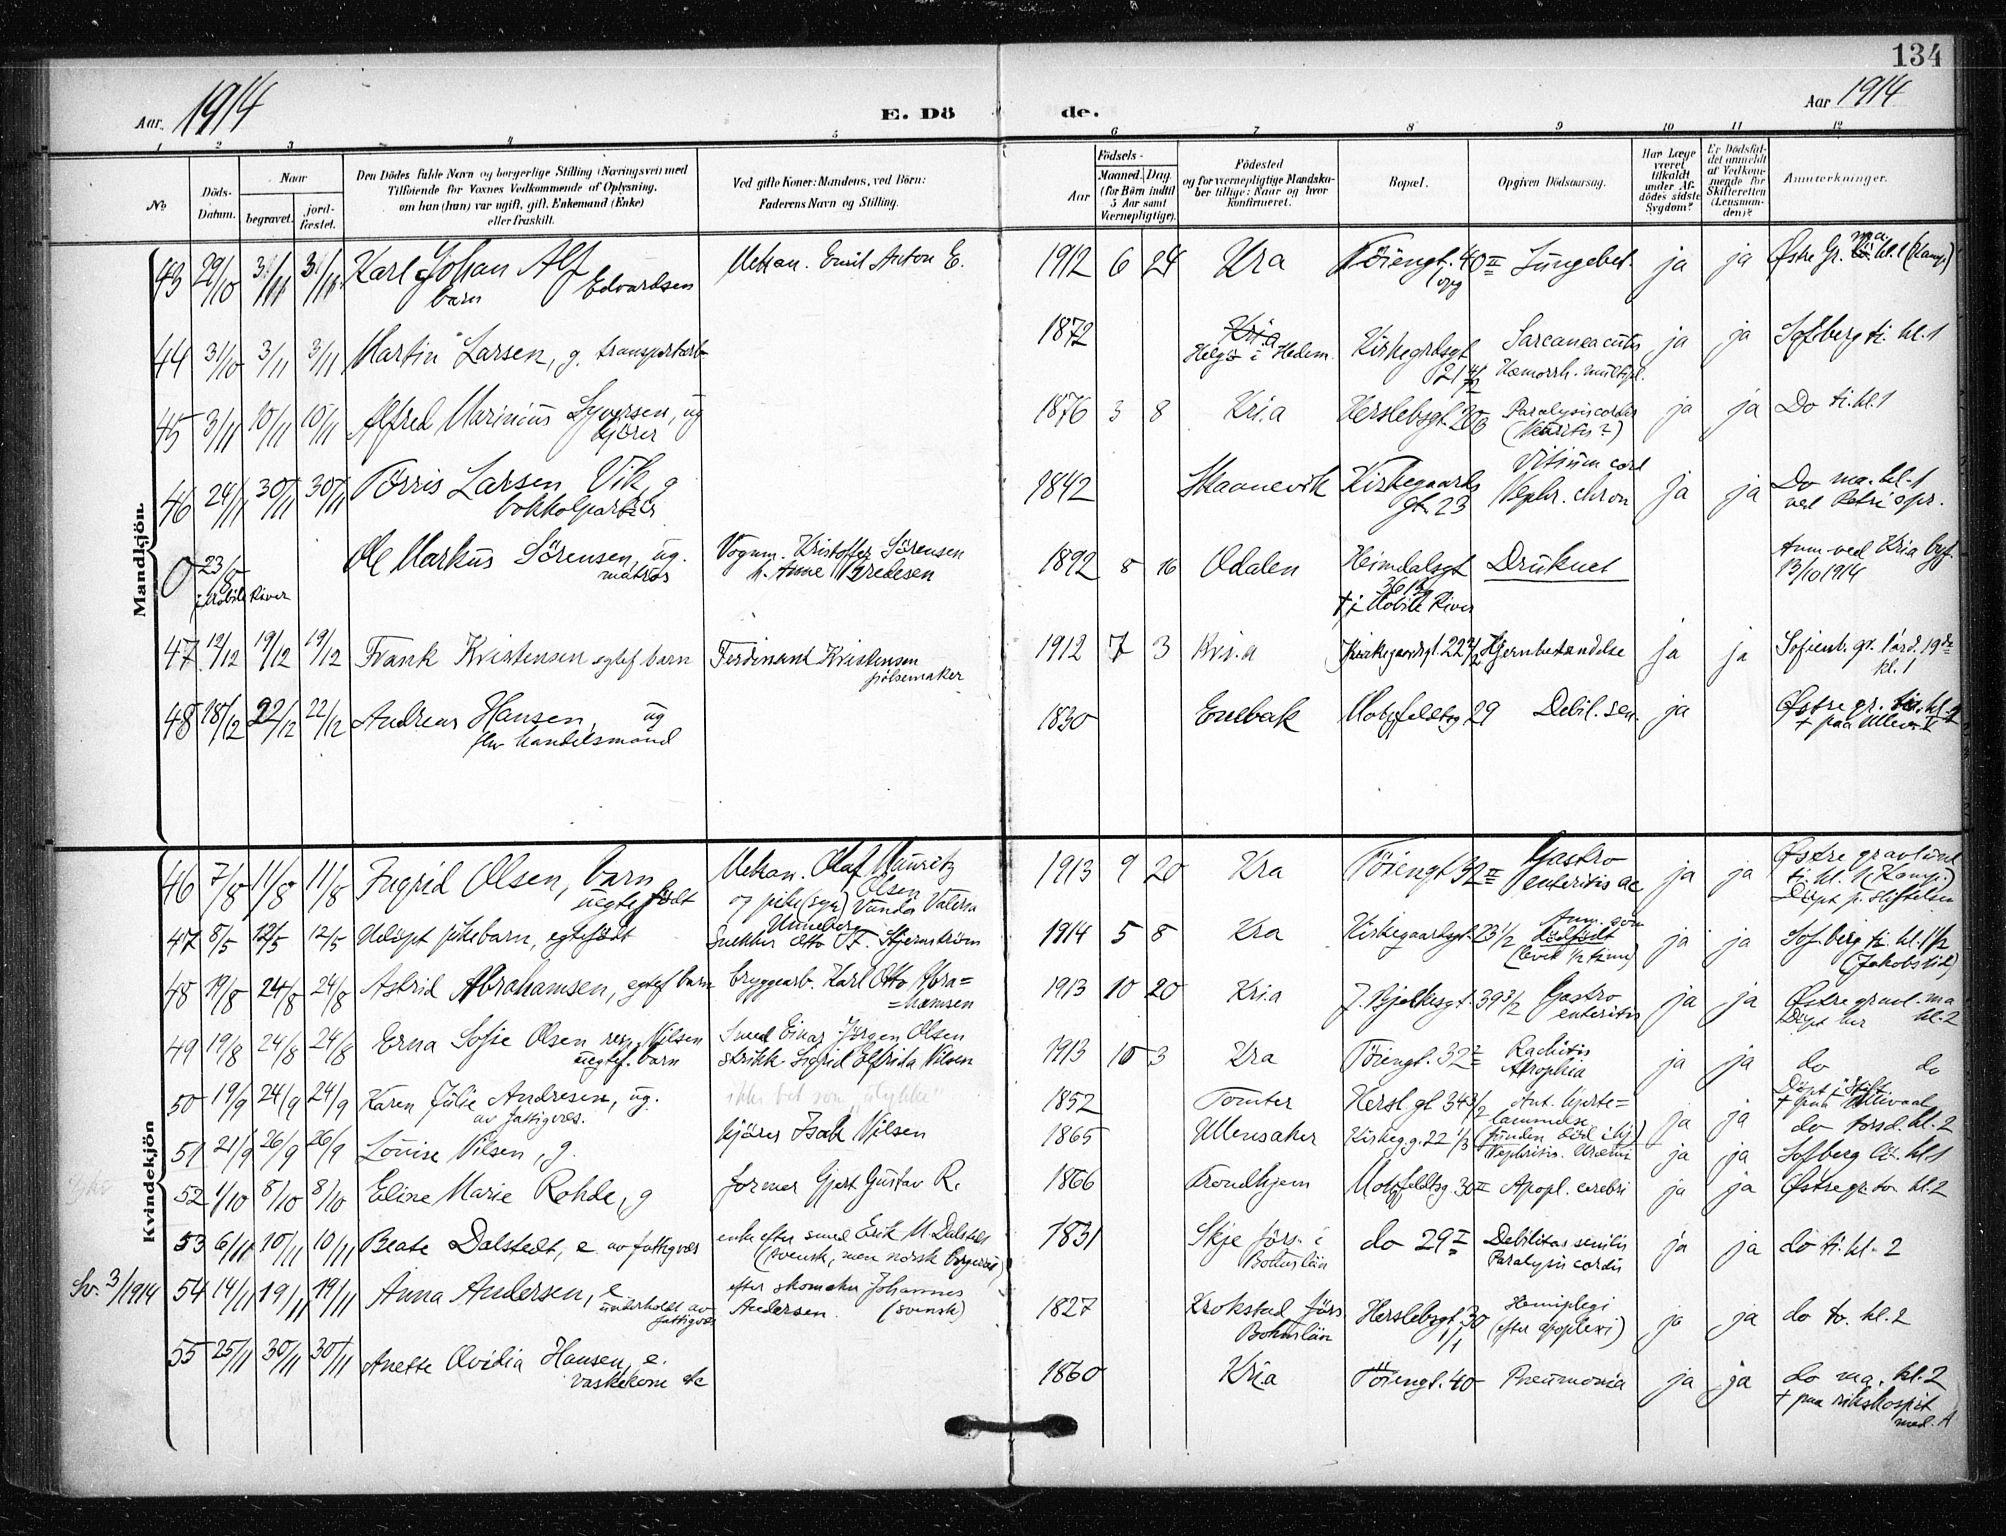 134
Aar 1914
E. Dö de.
Aar 1914
1 2 3 4 5 6 7 8 9 10 11 12
No
Döds-Datum.
Naar
begravet.
jord-fæstet.
Den Dödes fulde Navn og borgerlige Stilling (Næringsvei) med
Tilföiende for Voxnes Vedkommende af Oplysning,
om han (hun) var ugift, gift, Enkemand (Enke)
eller fraskilt.
Ved gifte Koner: Mandens, ved Börn:
Faderens Navn og Stilling.
Födsels-
Aar
Maaned. Dag.
(for Börn indtil
5 Aar samt
Værnepligtige).
Födested
og for værnepligtige Mandska-
ber tillige: Naar og hvor
konfirmeret.
Bopæl.
Opgiven Dödsaarsag.
Har Læge
været
tilkaldt
under Af-
dödes sidste
Sygdom?
Er Dödsfal-
det anmeldt
af Vedkom-
mende for
Skifteretten
(Lensman-
den)?
Anmærkninger.
Mandkjön.
43 29/10 3/11 3/11 Karl Johan Alf Edvardsen barn Mekan. Emil Anton E. 1912 6 24 Kra Töiengt. 40 II opg Lungebet. ja ja Østre Gr. ma kl. 1 (Kamp.)
44 31/10 3/11 3/11 Martin Larsen, g. transportarb 1872 Kri.a Helgö i Hedem. Kirkegrdsgt 21 4/2 Hæmorrh. multipl. ja ja Sofberg ti. kl. 1
45 3/11 10/11 10/11 Alfred Marinius Syversen, ug kjörer 1876 3 8 Kri.a Herslebsgt. 20 Paralysis cordis (Neuritis?) ja ja Do ti. kl. 1
46 24/11 30/11 30/11 Torris Larsen Vik, g 1842 Skaanevik Kirkegaards gt. 23 Vitium cord Nephr. chron ja ja Do ma. kl. 1 ved Petri spr.
0 23/5 i Mobile River Ole Markus Sörensen, ug. matros Vognm. Kristoffer Sörensen h. Anne 1892 8 16 Odalen Heimdalsgt 36 † i Mobile River Druknet Anm. ved Kria byf. 13/10 1914
47 12/12 19/12 19/12 Frank Kristensen egtef. barn Ferdinant Kristensen pölsemaker 1912 7 3 Kri.a Kirkegaardsgt. 22 2/2 Hjernbetændelse ja ja Sofienb. gr. lörd. 19de kl. 1
48 18/12 22/12 22/12 Andreas Hansen, ug fhv handelsmand 1830 Enebak Motzfeldtsg 29 Debil. sen. ja Østre gr. ti. kl. 2 † paa Ullev.
Kvindekjön
46 7/8 11/8 11/8 Ingrid Olsen, barn uegte födt Mekan. Olaf Mauritz Olsen og pike (sya) Vanda Valeria Unneberg 1913 9 20 Kra Töiengt 32 II Gastro enteritis ac ja ja Østre gravlund ti. kl. 1 (Kamp.) Döpt p. Stiftelsen
47 8/5 12/5 12/5 Udöpt pikebarn, egtefödt Snekker Otto F. Stjernström 1914 5 8 Kra Kirkegaardsgt. 23 1/2 Anm. som dödfödt (levet 1/2 time) ja ja Sofberg ti. kl. 1 1/2 (Jakobslid)
48 19/8 24/8 24/8 Astrid Abrahamsen, egtef barn bryggearb. Karl Otto Abra=hamsen 1913 10 20 Kri.a J. Bjelkesgt. 39 3/2 Gastro enteritis ja ja Østre gravl. ma kl. 2 Döpt her
49 19/8 24/8 24/8 Erna Sofie Olsen resp Nilsen uegtef. barn Smed Einar Jörgen Olsen strikk. Sigrid Elfrida Nilsen 1913 10 3 Kra Töiengt. 32 2 Rachitis Atrophia ja ja do do Döpt i Stift
50 19/9 24/9 24/9 Karen Julie Andresen, ug. av fattigvæs. ikke bet som "ulykke" 1852 Tomter Hersl gt 34 3/2 Ant. hjerte=lammelse (funden död i hj) ja ja † paa Ullevaal do torsd. kl. 2
51 21/9 26/9 26/9 Louise Nilsen, g. kjörer Isak Nilsen 1865 Ullensaker Kirkeg.g. 22 1/3 Nephritis. Uræmi ja ja Sofberg Lö. kl 1
52 1/10 8/10 8/10 Eline Marie Rohde, g former Gjert Gustav R. 1866 Trondhjem Motzfeldtsg 30 II Apopl. cerebri ja ja Østre gr. to kl. 2
53 6/11 10/11 10/11 Beate Dalstedt, e av fattigvæs enke efter smed Erik M. Dalstedt (svensk, men norsk borgerret) 1831 Skje förs. i Bohuslän do 29 I Debilitas senilis Paralysis cordis ja ja do ti. kl. 2
Sv. 3/1914 54 14/11 19/11 19/11 Anna Andersen, e underholdt av fattigvæs efter skomaker Johannes Andersen (svensk) 1827 Krokstad förs Bohuslän Herslebsgt. 30 1/1 Hemiplegi (efter apoplexi) ja ja do to. kl. 2
55 25/11 30/11 30/11 Anette Ovidia Hansen, e. vaskekone etc 1860 Kri.a Töiengt. 40 Pneumonia ja ja do ma. kl. 2 † paa rikshospit med. A